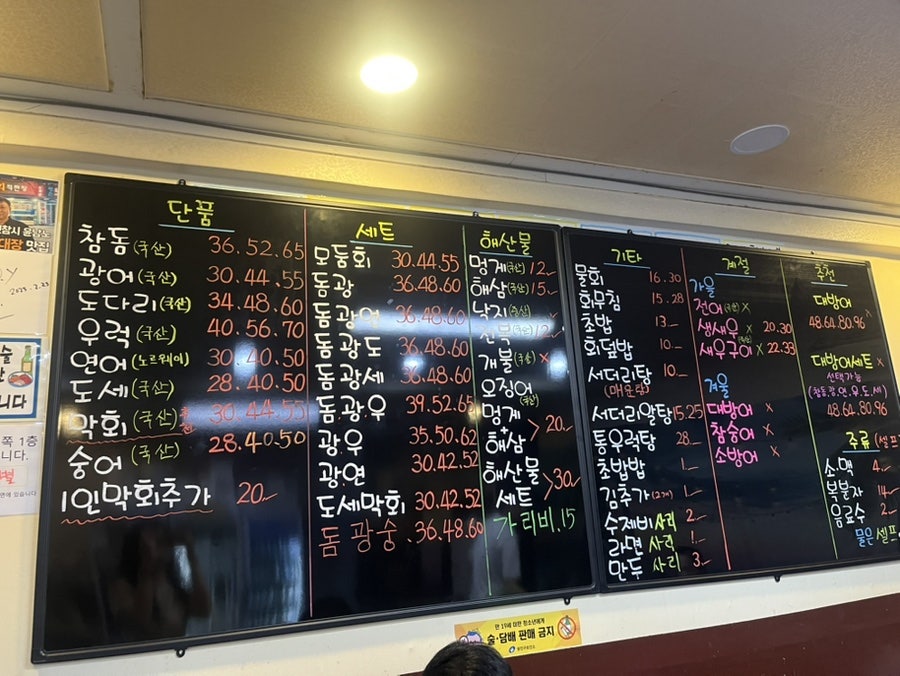 단품
참돔 (국산) 36.52.65
광어 (국산) 30.44.55
도다리 (국산) 34.48.60
우럭 (국산) 40.56.70
연어 (노르웨이) 30.40.50
도세 (국산) 28.40.50
막회 (국산) 30.44.55
숭어 (국산) 28.40.50
1인막회추가 20
세트
모둠회 30.44.55
돔광 36.48.60
돔광연 36.48.60
돔광도 36.48.60
돔광세 36.48.60
돔광우 39.52.65
광우 35.50.62
광연 30.42.52
도세막회 30.42.52
돔광숭 36.48.60
해산물
멍게 (국산) 12
해삼 (국산) 15
낙지
개불 (국산) x
오징어 (국산)
멍게
+
해삼 > 20
해산물
세트 > 30
가리비 15
기타
물회 16.30
회무침 15.28
초밥 13
회덮밥 10
서더리탕 10
(매운탕)
서더리알탕 15.25
통우럭탕 28
초밥밥 1
김추가 (2개) 1
수제비사리 2
라면 사리 1
만두 사리 3
계절
가을
전어 (국산) x
생새우 x 20.30
새우구이 x 22.33
겨울
대방어 x
참숭어 x
소방어 x
추천
대방어
48.64.80.96 x
대방어세트 x
선택가능
(참돔,광,연,우,도,세)
48.64.80.96
주류 (셀프
소맥 4
복분자 14
음료수 2
물은 셀프
만 19세 미만 청소년에게
술·담배 판매 금지
대장 맛집
2023.2.23
술
니다
쪽 1층
니다.